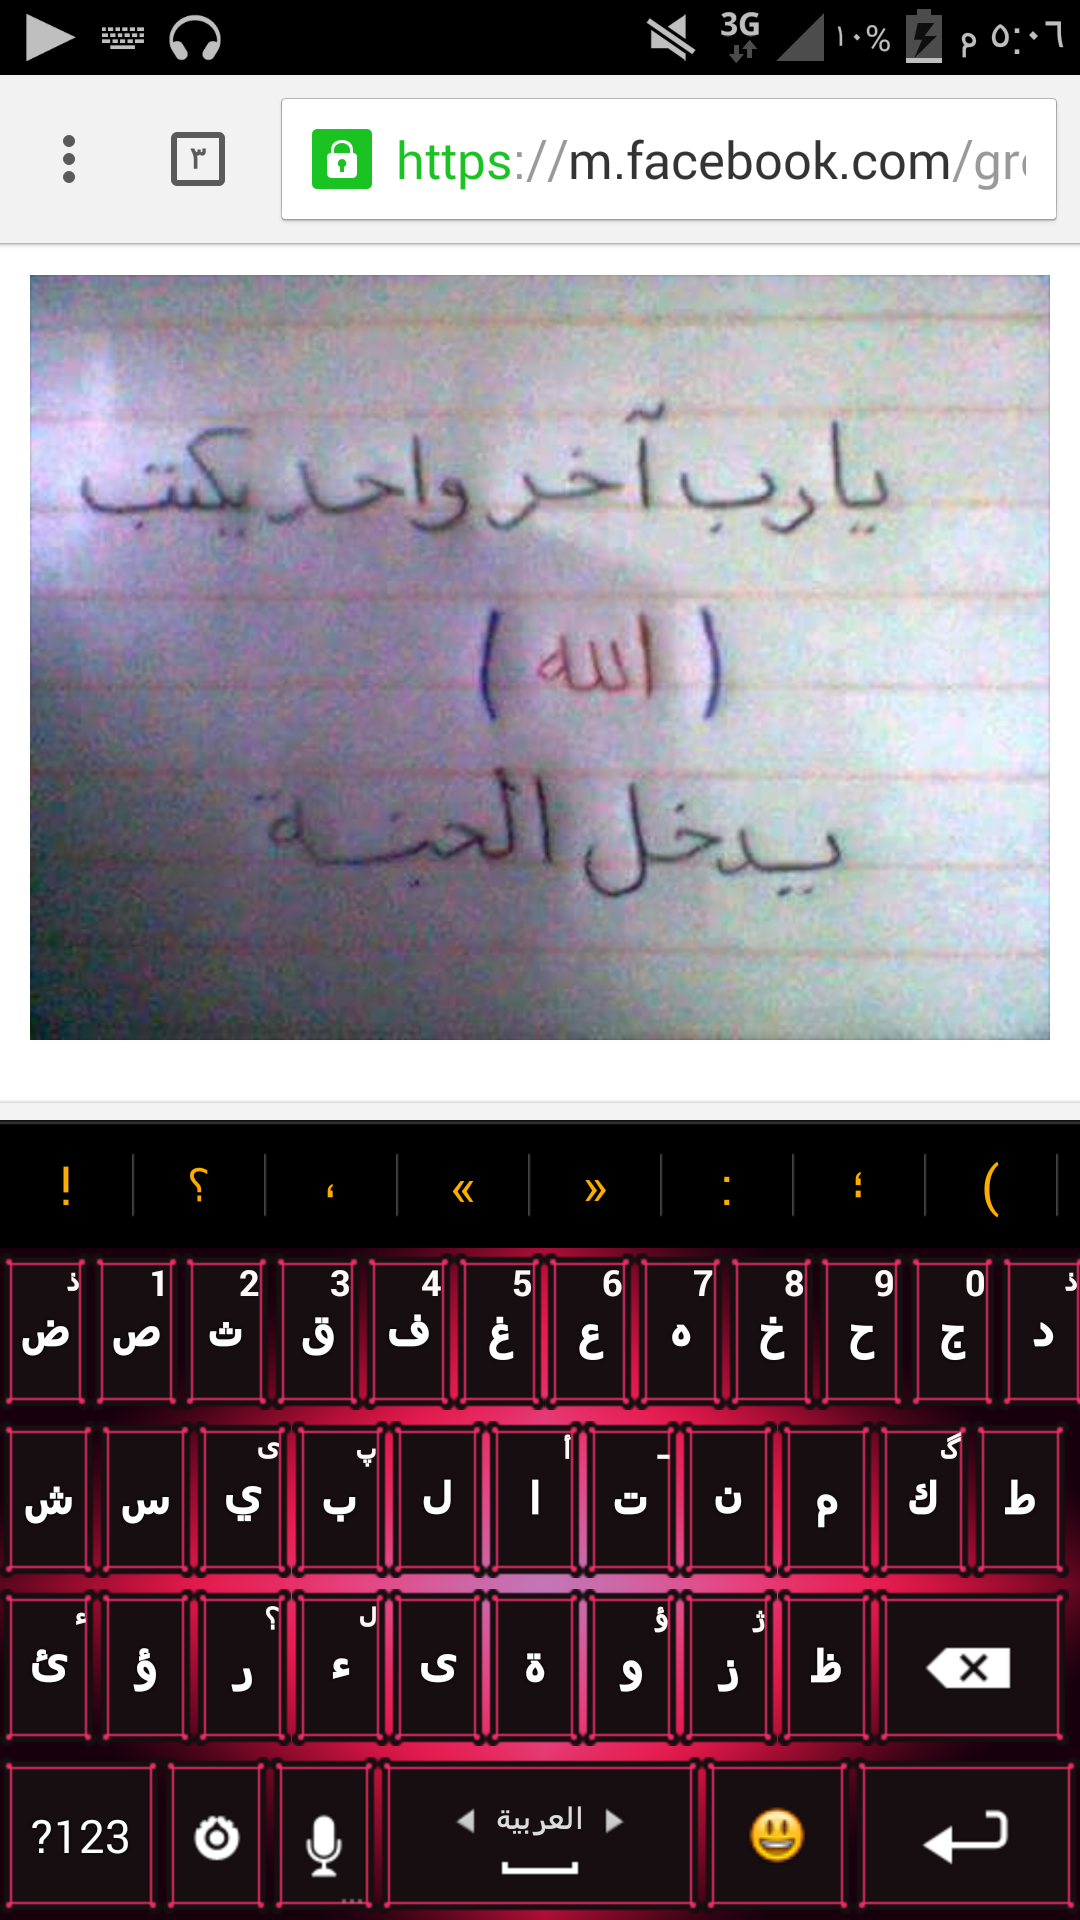 3G ١٠% ٥:٠٦ م
٣ https://m.facebook.com/gr
يارب آخر واحد يكتب
( الله )
يدخل الجنة
! ؟ ، » « : ؛ (
ض ذ ص 1 ث 2 ق 3 ف 4 غ 5 ع 6 ه 7 خ 8 ح 9 ج 0 د ذ
ش س ي ى ب پ ل ا أ ت ـ ن م ك گ ط
ئ ء ؤ ر ؟ ء ل ى ة و ؤ ز ژ ظ
?123 العربية